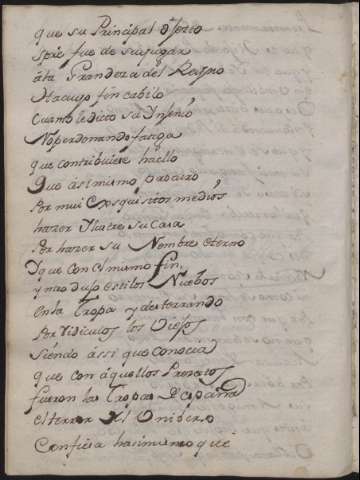 que su Principal objeto
spre fue de subjugar
âla Grandeza del Reyno
Hacuyo fin cabiló
Cuanto le dictó su Ynjenio
No perdonando fatiga
que contribuiese hàello
Quo àsimismo procuró
Por mui Exsquisitos medios
hazer Ylustre su Casa
Por hazer su Nombre eterno
Y que con el mismo fin,
yntrodujo estilos Nuebos
en la Tropa y desterrando
Por Ridiculos los Viejos
siendo àssi que conocia
que con àquellos Preceptos
fueron las Tropas D España
el terror del Oniberso
Confiesa hasimismo que